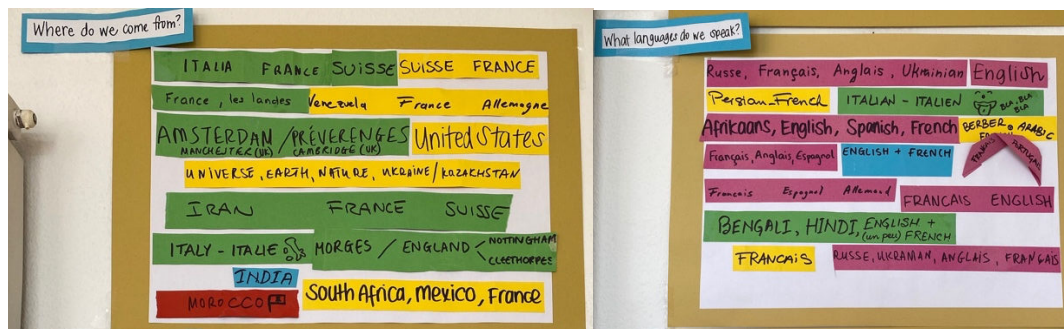 Where do we come from?
ITALIA FRANCE SUISSE SUISSE FRANCE
France, les landes Venezuela France Allemagne
AMSTERDAN / PRÉVERENGES United States
MANCHESTER (UK) CAMBRIDGE (UK)
UNIVERSE, EARTH, NATURE, UKRAINE/KAZAKHSTAN
IRAN FRANCE SUISSE
ITALY - ITALIE MORGES / ENGLAND NOTTINGHAM
CLEETHORPES
INDIA
MOROCCO South Africa, Mexico, France
What languages do we speak?
Russe, Français, Anglais, Ukrainian English
Persian-French ITALIAN - ITALIEN BLA, BLA
BLA
Afrikaans, English, Spanish, French BERBER ARABIC
Français, Anglais, Espagnol ENGLISH + FRENCH FRANCAIS PORTUGAIS
Francais Espagnol Allemand FRANCAIS ENGLISH
BENGALI, HINDI, ENGLISH +
(un peu) FRENCH
FRANCAIS RUSSE, UKRAMAN, ANGLAIS, FRANÇAIS